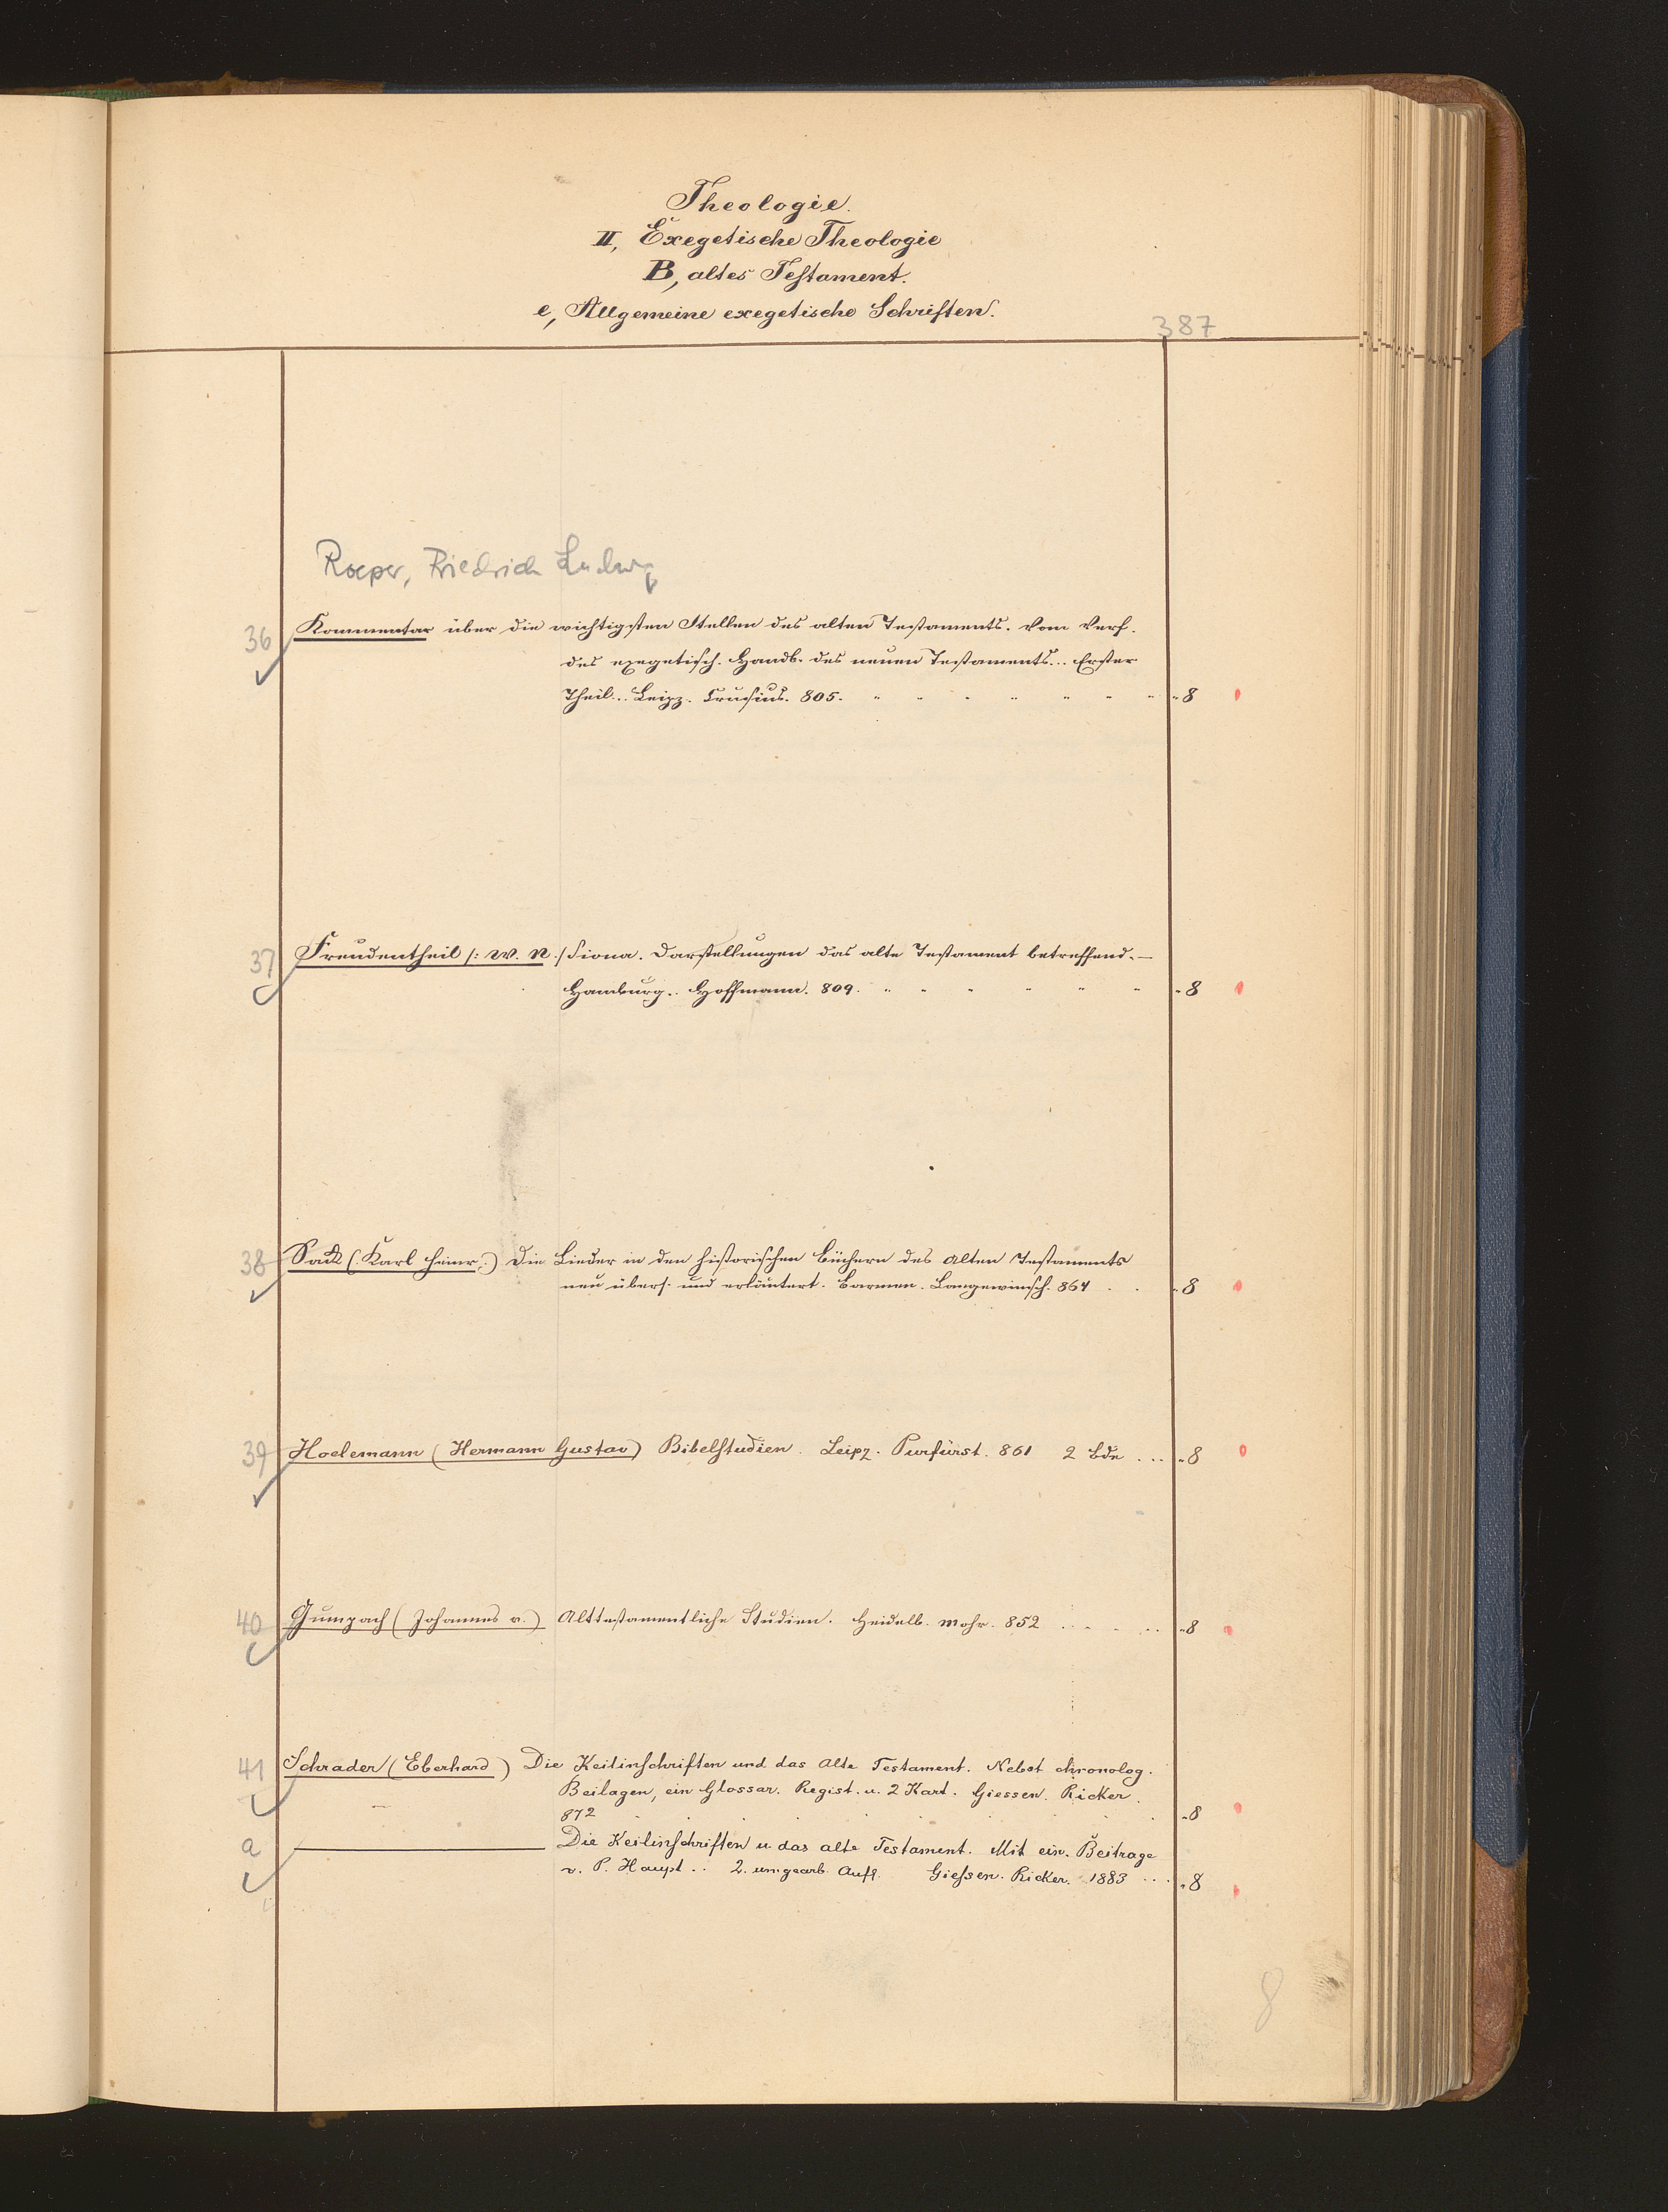 Theologie.
II, Exegetische Theologie
B, altes Testament.
e, Allgemeine exegetische Schriften.
387
Roeper, Friedrich Ludwig
36 Kommentar über die wichtigsten Stellen des alten Testaments. Vom Verf.
des exegetisch. Handb. des neuen Testaments... Erster
Theil... Leipz. Crusius. 805. „ 8
37 Freudentheil /: W. N. :/ Siona. Darstellungen das alte Testament betreffend. —
Hamburg. Hoffmann. 809. „ 8
38 Sack (Karl Heinr.) Die Lieder in den historischen Büchern des Alten Testaments
neu übers. und erläutert. Barmen. Langewiesch. 864 . . „ 8
39 Hoelemann (Hermann Gustav) Bibelstudien. Leipz. Purfürst. 861 2 Bde ... „ 8
40 Gumpach (Johannes v.) Alttestamentliche Studien. Heidelb. Mohr. 852 „ 8
41 Schrader (Eberhard) Die Keilinschriften und das Alte Testament. Nebst chronolog.
Beilagen, ein Glossar. Regist. u. 2 Kart. Giessen. Ricker.
872 „ 8
a ——— Die Keilinschriften u das alte Testament. Mit ein. Beitrage
v. P. Haupt .. 2. umgearb. Aufl. Giessen. Ricker. 1883 ... „ 8
8